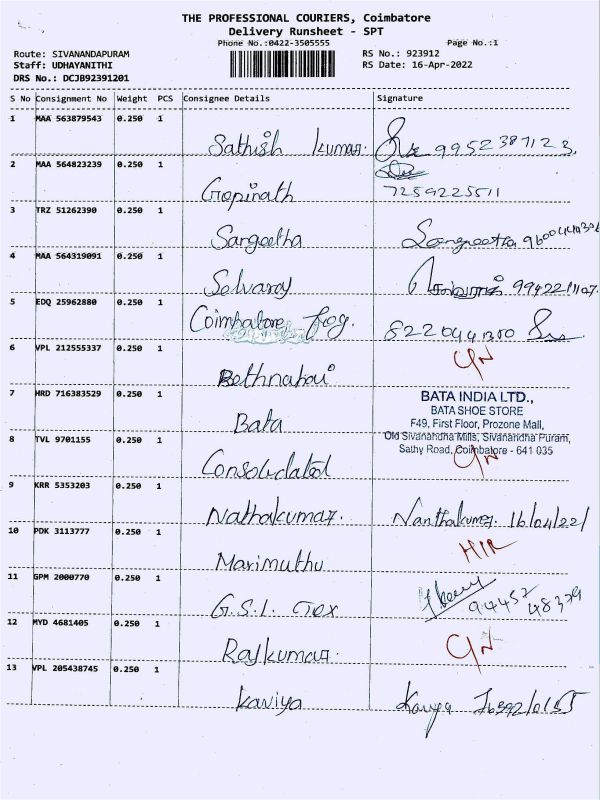 THE PROFESSIONAL COURIERS, Coimbatore
Delivery Runsheet - SPT
Phone No.:0422-3505555 Page No.:1
Route: SIVANANDAPURAM RS No.: 923912
Staff: UDHAYANITHI RS Date: 16-Apr-2022
DRS No.: DCJB92391201
S No Consignment No Weight PCS Consignee Details Signature
1 MAA 563879543 0.250 1
Sathish kumar. 9952387123
2 MAA 564823239 0.250 1
Gopinath 7259225511
3 TRZ 51262390 0.250 1
Sangeetha Sangeetha
4 MAA 564319091 0.250 1
Selvaraj செல்வராஜ்
5 EDQ 25962880 0.250 1
Coimbatore 8220441350
6 VPL 212555337 0.250 1
C/N
7 HRD 716383529 0.250 1
BATA INDIA LTD.,
BATA SHOE STORE
Bata F49, First Floor, Prozone Mall,
8 TVL 9701155 0.250 1 Old Sivanandha Mills, Sivanandha Puram,
Sathy Road, Coimbatore - 641 035
Consolidated C/N
9 KRR 5353203 0.250 1
Nathakumar. Nanthakumar. 16/04/22/
10 PDK 3113777 0.250 1
Marimuthu
11 GPM 2000770 0.250 1
G.S.L. Tex 94457 48379
12 MYD 4681405 0.250 1
Rajkumar. C/N
13 VPL 205438745 0.250 1
Kaviya Kavya